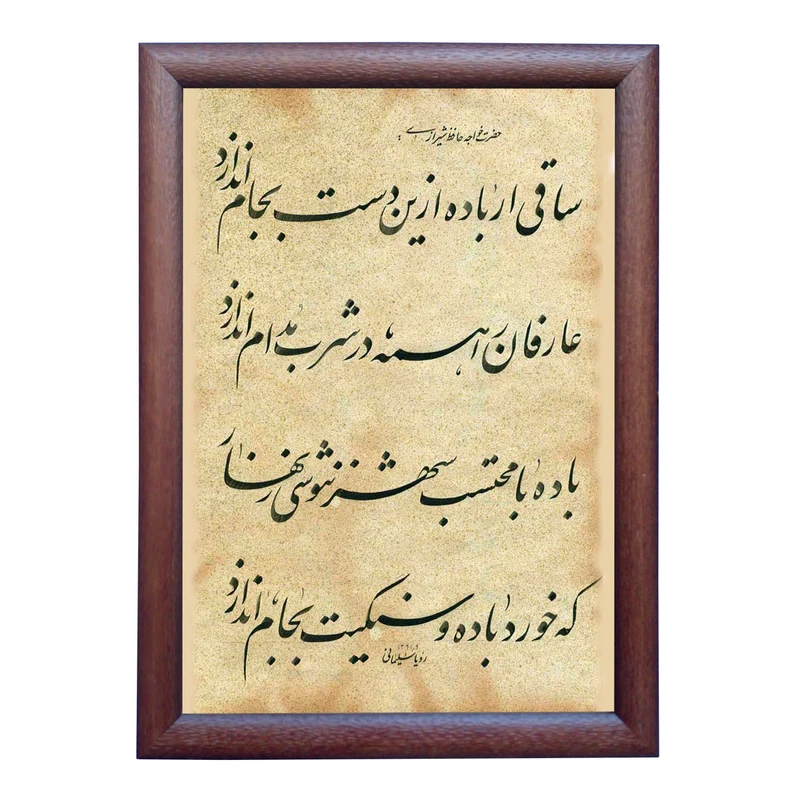 حضرت خواجه حافظ شیرازی :
ساقی ار باده ازین دست بجام اندازد
عارفان را همه در شرب مدام اندازد
باده با محتسب شهر ننوشی زنهار
که خورد باده و سنگیت بجام اندازد
رؤیا سلیمانی